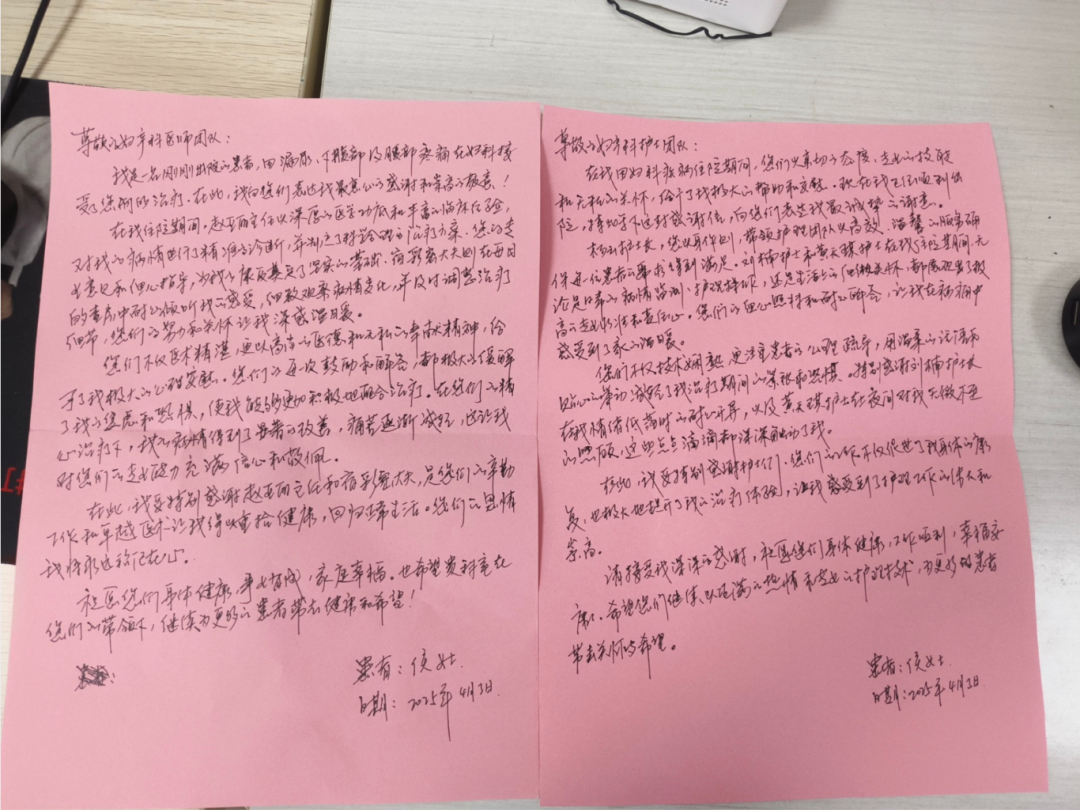 尊敬的妇产科医师团队：
我是一名刚刚出院的患者，因漏尿、下腹部及腰部疼痛在妇科接
受了您们的治疗。在此，我向您们表达我最衷心的感谢和崇高的敬意！
在我住院期间，赵亚丽主任以深厚的医学功底和丰富的临床经验，
对我的病情进行了精准的诊断，并制定了科学合理的治疗方案。您的专
业意见和细心指导，为我的康复奠定了坚实的基础。宿彩霞大夫则在每日
的查房中耐心倾听我的感受，细致观察病情变化，并及时调整治疗
细节，您们的努力和关怀让我深感温暖。
您们不仅医术精湛，更以高尚的医德和无私的奉献精神，给
予了我极大的心理安慰。您们的每次鼓励和解答，都极大的缓解
了我的焦虑和恐惧，使我能够更加积极地配合治疗。在您们的精
心治疗下，我的病情得到了显著的改善，痛苦逐渐减轻，这让我
对您们的专业能力充满信心和敬佩。
在此，我要特别感谢赵亚丽主任和宿彩霞大夫，是您们的辛勤
工作和卓越医术让我得以重拾健康，回归正常生活。您们的恩情
我将永远铭记在心。
祝愿您们身体健康，事业有成，家庭幸福。也希望贵科室在
您们的带领下，继续为更多的患者带来健康和希望！
患者：侯女士
日期：2025年4月3日
尊敬的妇产科护士团队：
在我因妇科疾病住院期间，您们以真切的态度、专业的技能
和无私的关怀，给予了我极大的帮助和支持。现在我已经顺利出
院，特书写下这封感谢信，向您们表达我最诚挚的谢意。
护士长，您以身作则，带领护理团队以高效、温馨的服务确
保每一位患者的需求得到满足。刘楠护士和黄天璟护士在我住院期间，无
论是日常的病情监测、护理操作，还是生活上的细微关怀，都展现出了极
高的专业水准和责任心。您们的悉心照料和耐心解答，让我在病痛中
感受到了家的温暖。
您们不仅技术娴熟，更注重患者的心理疏导，用温柔的话语和
贴心的举动减轻了我治疗期间的紧张和恐惧。特别感谢刘楠护士
在我情绪低落时的耐心开导，以及黄天璟护士在夜间对我无微不至
的照顾，这些点点滴滴都深深触动了我。
在此，我要特别感谢护士们，您们的工作不仅促进了我身体的康
复，也极大地提升了我的治疗体验，让我感受到了护理工作的伟大和
崇高。
请接受我深深的感谢，祝愿您们身体健康，工作顺利，幸福安
康。希望您们继续以饱满的热情和专业的护理技术，为更多的患者
带去关怀与希望。
患者：侯女士
日期：2025年4月3日